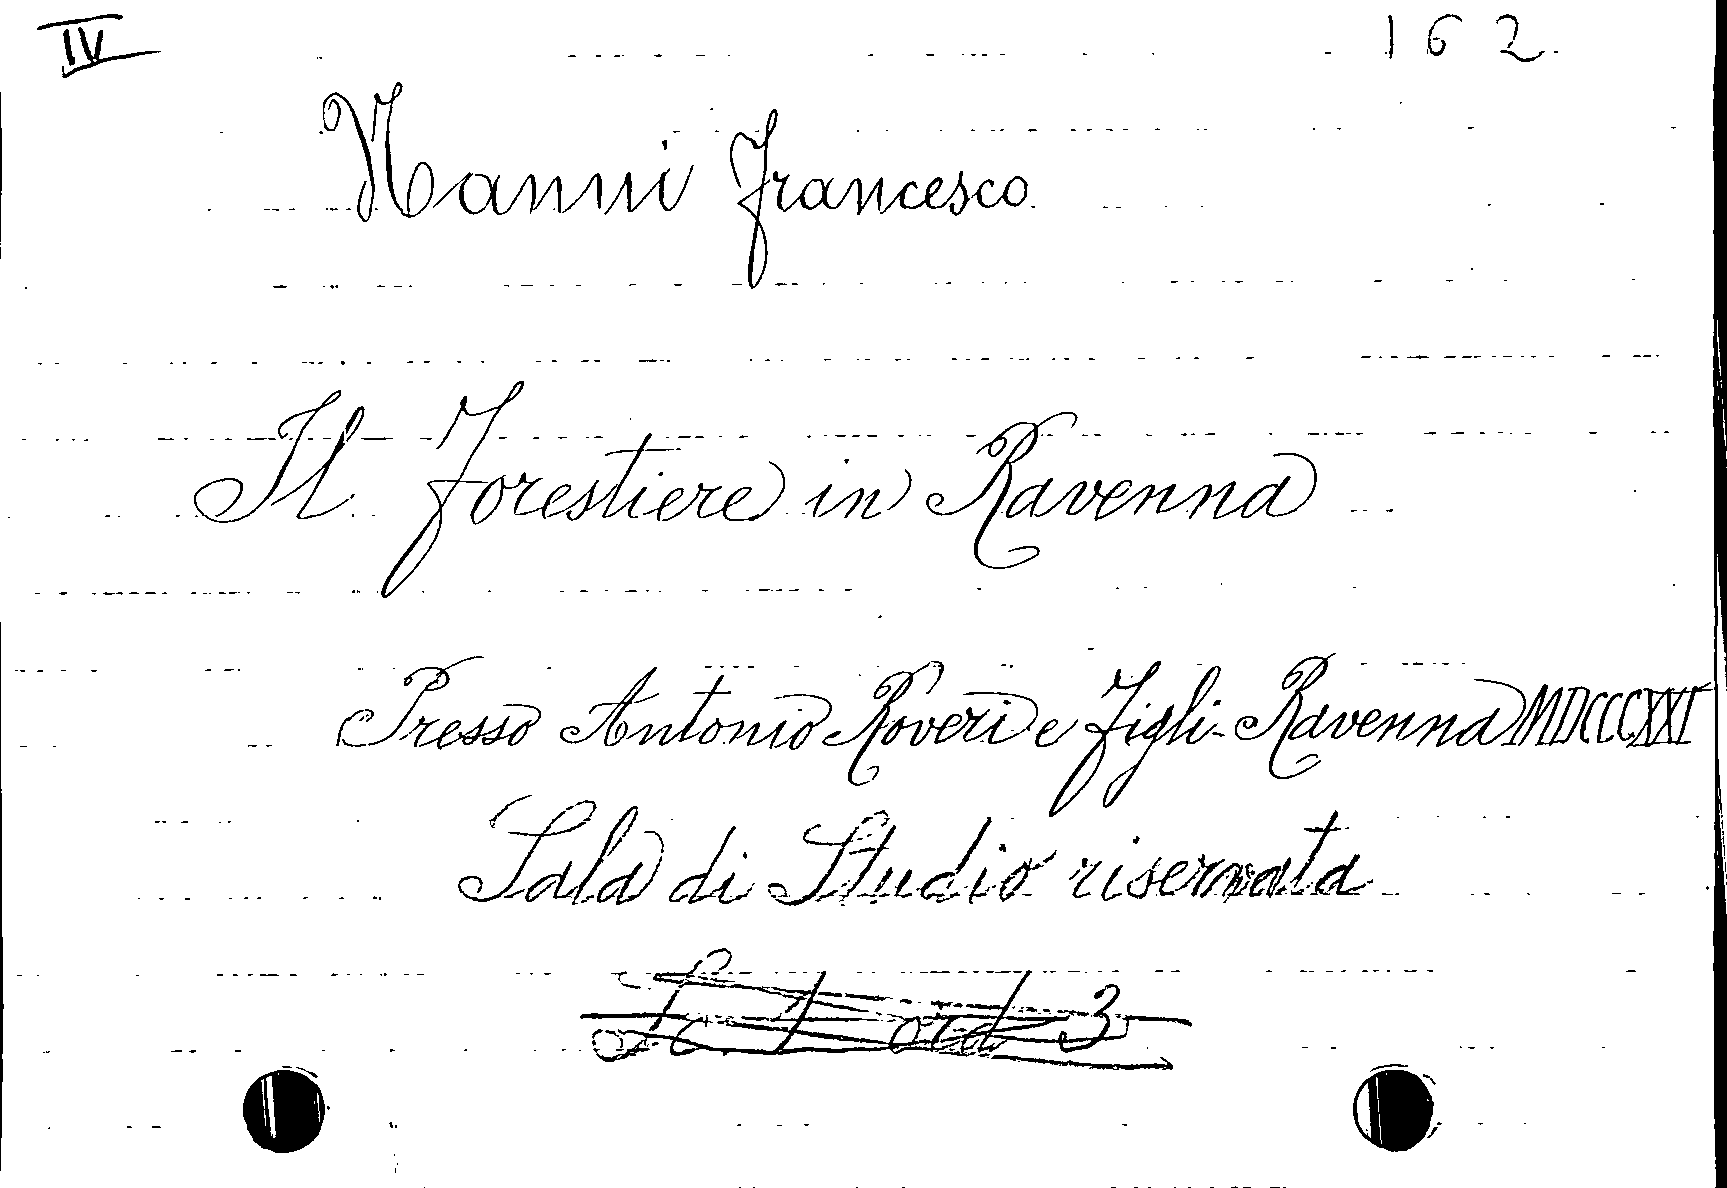 IV 162
Nanni Francesco
Il Forestiere in Ravenna
Presso Antonio Roveri e Figli - Ravenna MDCCCXXI
Sala di Studio riservata
Sc. 1 ord 3